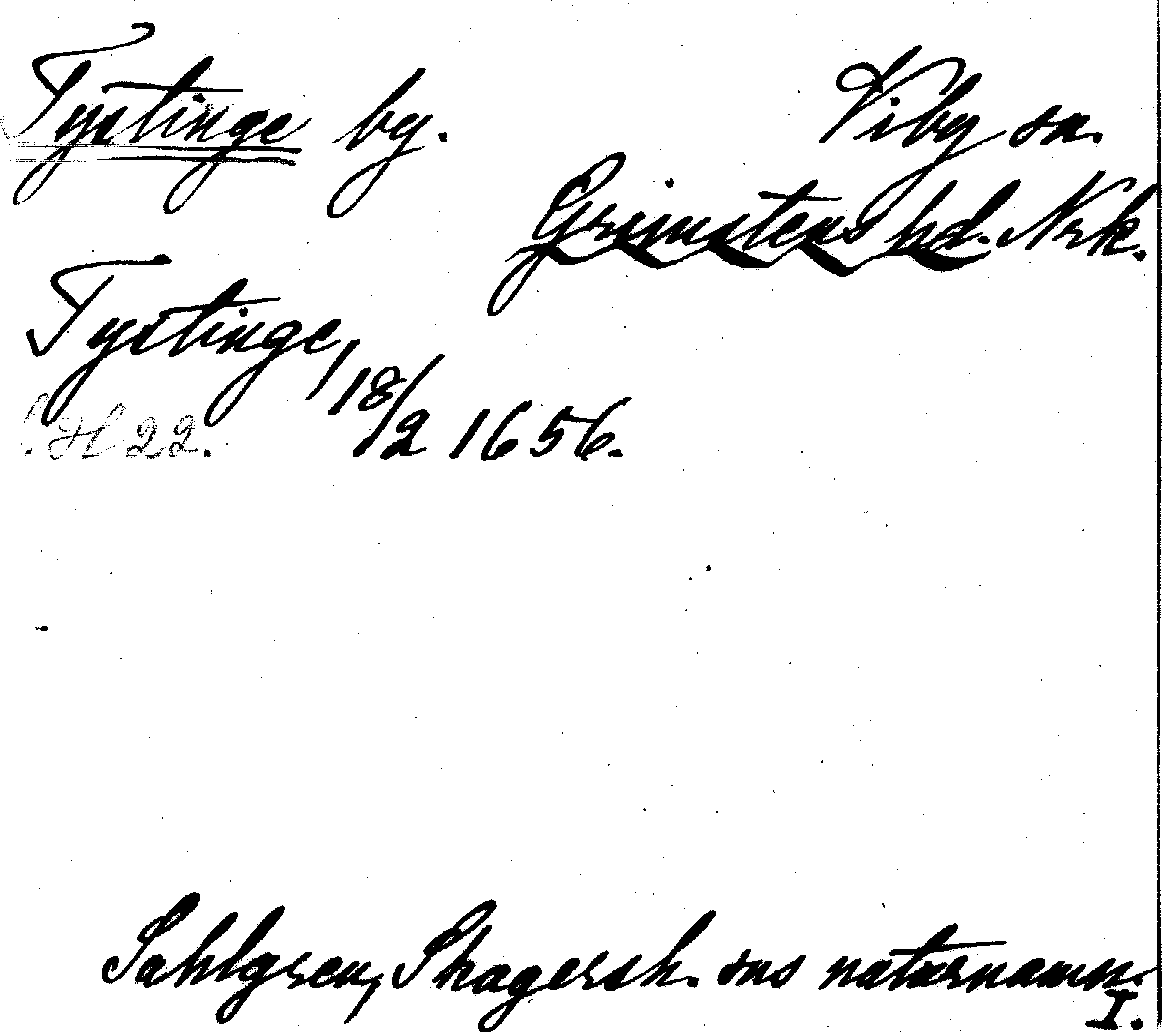 Tystinge by. Viby sn.
Grimstens hd. Nrk.
Tystinge, 18/2 1656.
H 22.
Sahlgren, Skagersh. sns naturnamn.
I.